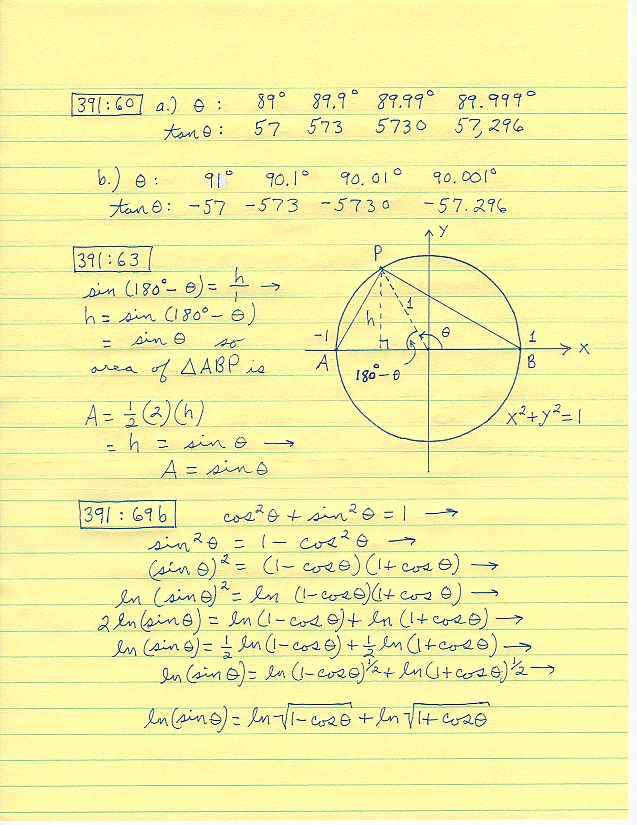 391:60 a.) θ : 89° 89.9° 89.99° 89.999°
tan θ : 57 573 5730 57,296
b.) θ : 91° 90.1° 90.01° 90.001°
tan θ: -57 -573 -5730 -57.296
391:63
sin (180° - θ) = h/1 →
h = sin (180° - θ)
= sin θ so
area of △ABP is
A = 1/2 (2)(h)
= h = sin θ →
A = sin θ
y
P
1
h
θ
-1
1
A
B
x
180° - θ
x² + y² = 1
391 : 69b cos²θ + sin²θ = 1 →
sin²θ = 1 - cos²θ →
(sin θ)² = (1 - cos θ)(1 + cos θ) →
ln (sin θ)² = ln (1 - cos θ)(1 + cos θ) →
2 ln (sin θ) = ln (1 - cos θ) + ln (1 + cos θ) →
ln (sin θ) = 1/2 ln (1 - cos θ) + 1/2 ln (1 + cos θ) →
ln (sin θ) = ln (1 - cos θ)^1/2 + ln (1 + cos θ)^1/2 →
ln (sin θ) = ln √(1 - cos θ) + ln √(1 + cos θ)